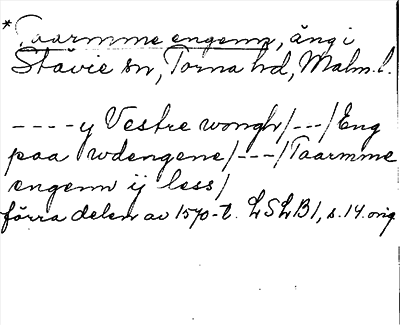 *Taarmme engenn, äng i
Stävie sn, Torna hd, Malm. l.
----y Vestre wongh/---/Eng
paa wdengene/---/Taarmme
engenn ij less/
förra delen av 1570-t. LSLB1, s. 14. orig.